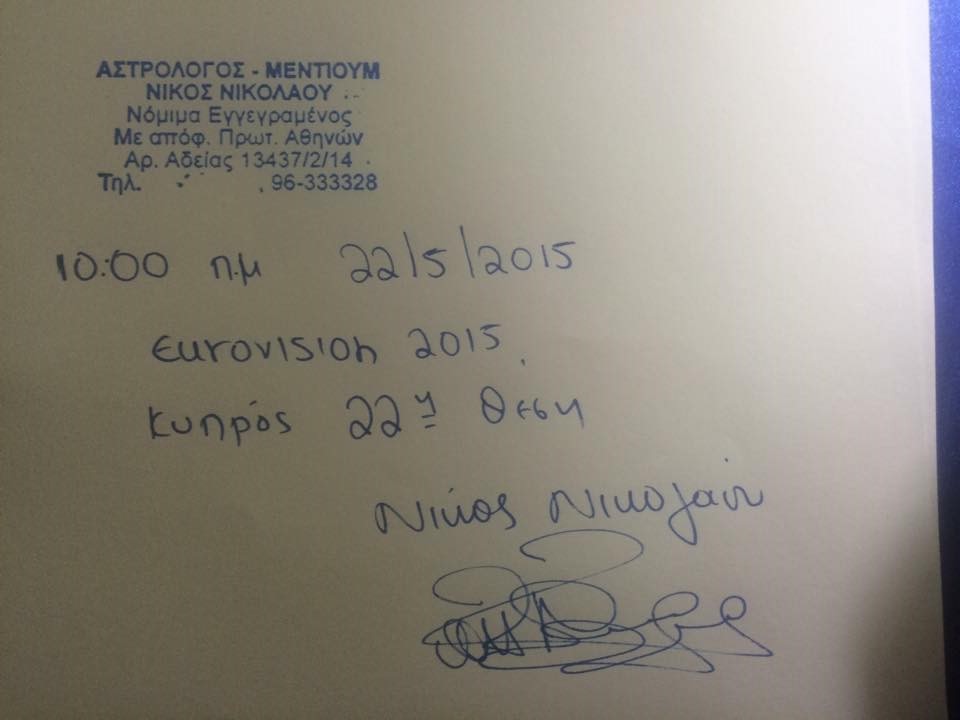 ΑΣΤΡΟΛΟΓΟΣ - ΜΕΝΤΙΟΥΜ
ΝΙΚΟΣ ΝΙΚΟΛΑΟΥ
Νόμιμα Εγγεγραμένος
Με απόφ. Πρωτ. Αθηνών
Αρ. Αδείας 13437/2/14
Τηλ. 96-333328
10:00 π.μ 22/5/2015
Eurovision 2015
Κυπρός 22η θεση
Νικος Νικολάου